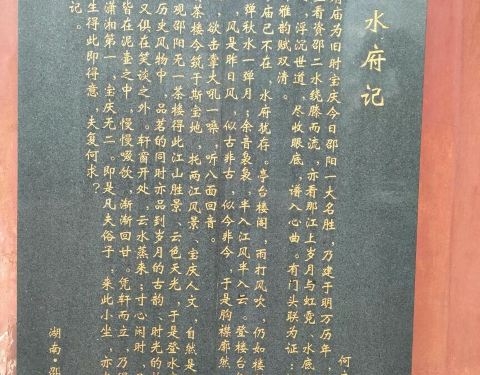 水府记
何
庙为旧时宝庆今日邵阳一大名胜，乃建于明万历年，
看资邵二水绕膝而流，亦看那江上岁月与虹霓、水底
，浮沉世道，尽收眼底，谱入心曲。有门头联为证：
雅韵赋双清。
庙已不在，水府犹存。亭台楼阁，雨打风吹，仍如楼
弹秋水一弹月；余音袅袅，半入江风半入云。登楼台
风是昨日风，似古非古，似今非今，于是胸襟廓然
欲击掌大吼一嗓，听八面回音。
茶楼今筑于斯宝地，托两江风景、宝庆人文，自然是
观邵阳无一茶楼得此江山胜景、云色天光，于是登水
历史风物中，品茗的同时亦品到岁月的古韵、时光的
又俱在笑谈之外。轩窗开处，云水蒸来；寸心闲时，
皆在泥壶之中，慢慢啜饮，渐渐回甘。凭轩而立，乃
潇湘第一，宝庆无二。即是凡夫俗子，来此小坐，亦
生得此即得意，夫复何求？
记。
湖南·邵